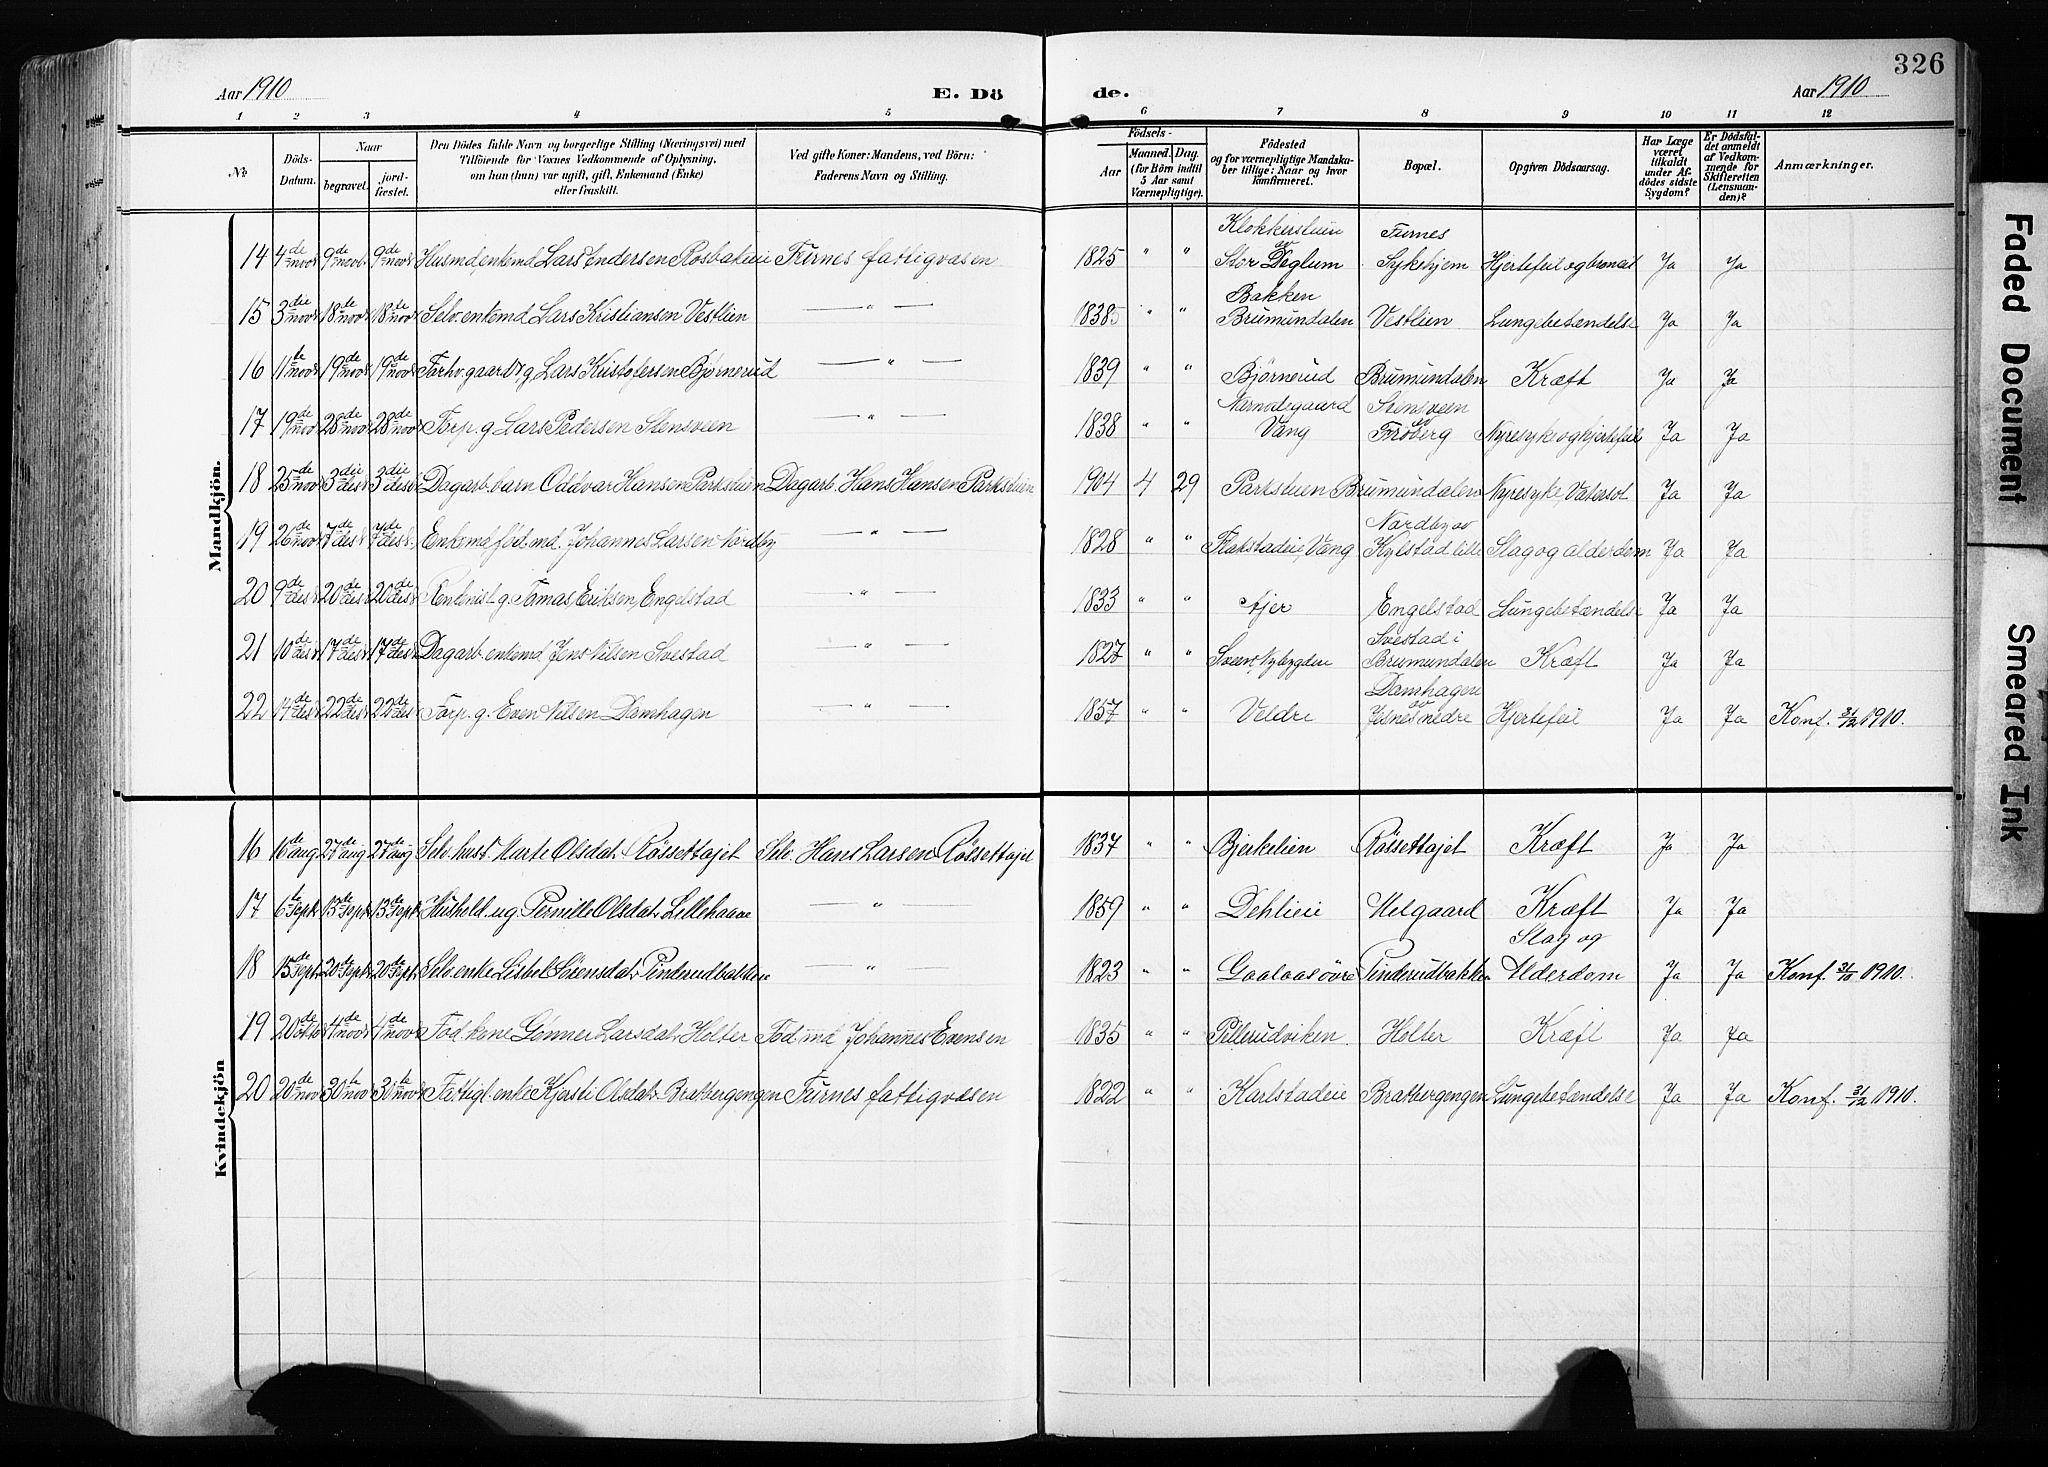 326
Aar 1910
E. Dö
de.
Aar 1910
1 2 3 4 5 6 7 8 9 10 11 12
No
Döds-Datum.
Naar
begravet.
jord-fæstet.
Den Dödes fulde Navn og borgerlige Stilling (Næringsvei) med
Tilföiende för Voxnes Vedkommende af Oplysning,
om hun (hun) var ugift, gift, Enkemand (Enke)
eller fraskilt.
Ved gifte Koner: Mandens, ved Börn:
Faderens Navn og Stilling.
Födsels-
Aar
Maaned. Dag.
(for Börn indtil
5 Aar samt
Værnepligtige).
Födested
og for værnepligtige Mandska-
ber tillige: Naar og hvor
konfirmeret.
Bopæl.
Opgiven Dödsaarsag.
Har Læge
været
tilkaldt
under Af-
dödes sidste
Sygdom?
Er Dödsfal-
det anmeldt
af Vedkom-
mende for
Skifteretten
(Lensman-
den)?
Anmærkninger.
Mandkjön.
14 4de nov 9de nov 9de nov Husmd, enkemd Lars Andersen Rosbateie Furnes fattigvæsen 1825 " " Klokkerstuen av Stor Deglum Furnes Sykehjem Hjertefeil og Ja Ja
15 3die nov 18de nov 18de nov Selv. enkemd Lars Kristiansen Vestlien — " — 1838 " " Bakken Brumundalen Vestlien Lungebetændelse Ja Ja
16 11te nov 19de nov 19de nov Forhv. gaardbr, g. Lars Kristofersen Bjørnerud — " — 1839 " " Bjørnerud Brumundalen Kræft Ja Ja
17 19de nov 28de nov 28de nov Forp. g. Lars Pedersen Stensveen — " — 1838 " " Nernodegaard Vang Stensveen av Frøberg Nyresyke og hjertefeil Ja Ja
18 25de nov 3die des 3die des Dagarb. barn Oddvar Hansen Parkstuen Dagarb. Hans Hansen Parkstuen 1904 4 29 Parkstuen Brumundalen Nyresyke, Vatersot Ja Ja
19 26de nov 7de des 7de des Enkema. fød. md. Johannes Larsen Nordby — " — 1828 " " Flakstadeie, Vang Nordby av Kylstad lille Slag og alderdom Ja Ja
20 9de des 20de des 20de des Rentenist g. Tomas Eriksen Engelstad — " — 1833 " " Ajer Engelstad Lungebetændelse Ja Ja
21 10de des 17de des 17de des Dagarb. enkemd Jens Nilsen Svestad — " — 1827 " " Sveen, Nybygden Svestad i Brumundalen Kræft Ja Ja
22 14de des 22de des 22de des Forp. g. Even Nilsen Damhagen — " — 1857 " " Veldre Damhagen av Jesnes nedre Hjertefeil Ja Ja Konf. 31/12 1910.
Kvindekjön
16 16de aug 27de aug 27de aug Selv. hust. Marte Olsdat. Røssettajet Selv. Hans Larsen Røssettajet 1837 " " Bjerkelien Røssettajet Kræft Ja Ja
17 6te Sept 13de Sept 13de Sept Hushold. ug. Pernille Olsdat. Lillehaave — " — 1859 " " Dehlieie Helgaard Kræft Ja Ja
18 15de Sept 20de Sept 20de Sept Selv. enke Lisbet Sørensdat. Pinderudbakken — " — 1823 " " Gaalaas øvre Pinderudbakken Slag og Alderdom Ja Ja Konf. 31/10 1910.
19 20de okto 4de nov 4de nov Fød. kone Gønner Larsdat. Holter Fød md Johannes Evensen 1835 " " Pellerudviken Holter Kræft Ja Ja
20 20de nov 30te nov 30te nov Fattigl. enke Kjersti Olsdat. Bratbergengen Furnes fattigvæsen 1822 " " Karlstadeie Bratbergengen Lungebetændelse Ja Ja Konf. 31/12 1910.
Faded Document
Smeared Ink